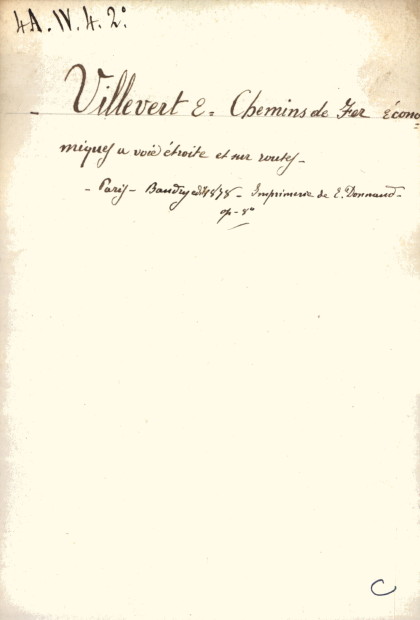 4A. IV. 4. 2°
- Villevert E = Chemins de Fer écono=
miques a voie étroite et sur routes -
- Paris - Baudry ed 1878 - Imprimerie de E. Donnaud -
op - 8°
C